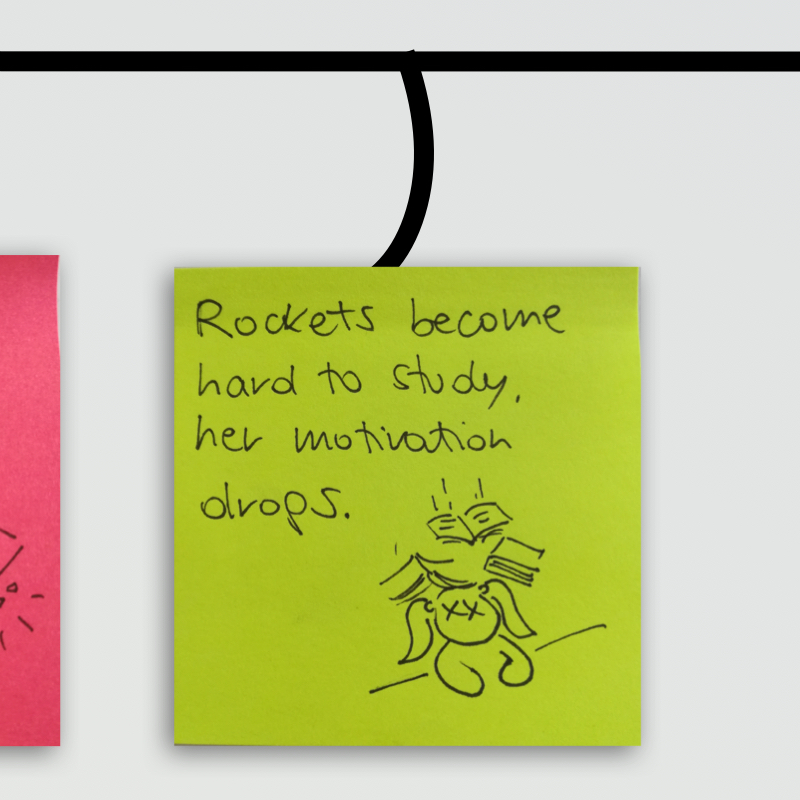 Rockets become
hard to study,
her motivation
drops.